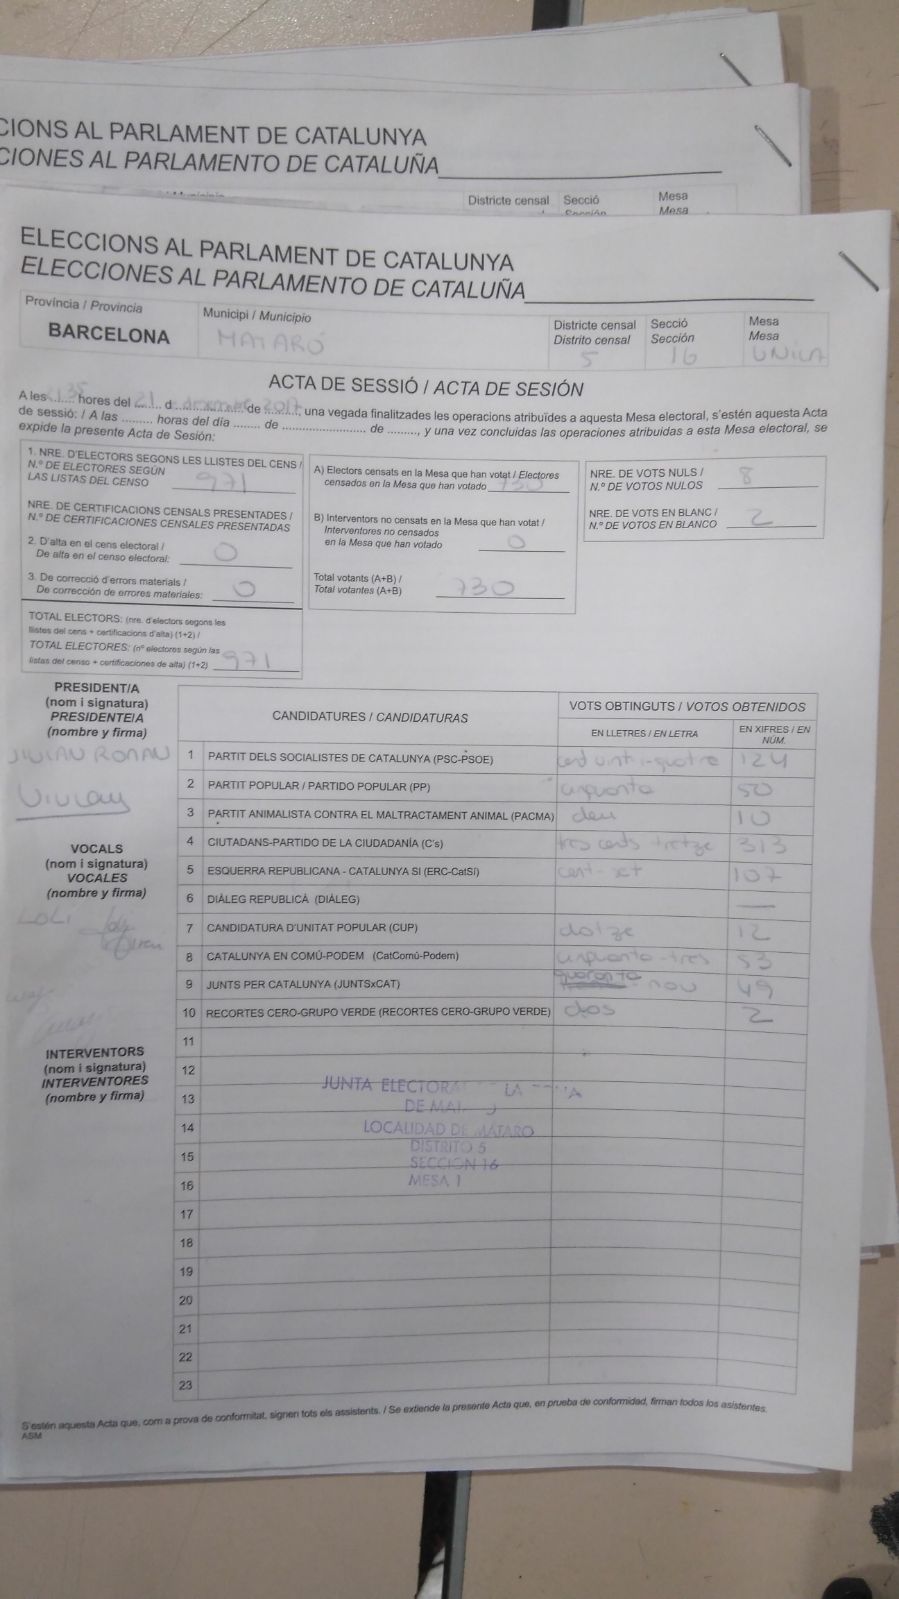 CIONS AL PARLAMENT DE CATALUNYA
CIONES AL PARLAMENTO DE CATALUÑA
Districte censal Secció Mesa
Sección Mesa
ELECCIONS AL PARLAMENT DE CATALUNYA
ELECCIONES AL PARLAMENTO DE CATALUÑA
Província / Provincia Municipi / Municipio Districte censal Secció Mesa
BARCELONA MATARÓ Distrito censal Sección Mesa
5 16 UNICA
ACTA DE SESSIÓ / ACTA DE SESIÓN
A les ... hores del 21 d desembre de 2017, una vegada finalitzades les operacions atribuïdes a aquesta Mesa electoral, s'estén aquesta Acta
de sessió: / A las ......... horas del día ........ de ........................ de ........., y una vez concluidas las operaciones atribuidas a esta Mesa electoral, se
expide la presente Acta de Sesión:
1. NRE. D'ELECTORS SEGONS LES LLISTES DEL CENS /
N.º DE ELECTORES SEGÚN
LAS LISTAS DEL CENSO 971
NRE. DE CERTIFICACIONS CENSALS PRESENTADES /
N.º DE CERTIFICACIONES CENSALES PRESENTADAS
2. D'alta en el cens electoral /
De alta en el censo electoral: 0
3. De correcció d'errors materials /
De corrección de errores materiales: 0
TOTAL ELECTORS: (nre. d'electors segons les
llistes del cens + certificacions d'alta) (1+2) /
TOTAL ELECTORES: (nº electores según las
listas del censo + certificaciones de alta) (1+2) 971
A) Electors censats en la Mesa que han votat / Electores
censados en la Mesa que han votado 730
B) Interventors no censats en la Mesa que han votat /
Interventores no censados
en la Mesa que han votado 0
Total votants (A+B) /
Total votantes (A+B) 730
NRE. DE VOTS NULS /
N.º DE VOTOS NULOS 8
NRE. DE VOTS EN BLANC /
N.º DE VOTOS EN BLANCO 2
PRESIDENT/A
(nom i signatura)
PRESIDENTE/A
(nombre y firma)
VOCALS
(nom i signatura)
VOCALES
(nombre y firma)
LOLI
INTERVENTORS
(nom i signatura)
INTERVENTORES
(nombre y firma)
CANDIDATURES / CANDIDATURAS VOTS OBTINGUTS / VOTOS OBTENIDOS
EN LLETRES / EN LETRA EN XIFRES / EN NÚM.
1 PARTIT DELS SOCIALISTES DE CATALUNYA (PSC-PSOE) cent vint-i-quatre 124
2 PARTIT POPULAR / PARTIDO POPULAR (PP) cinquanta 50
3 PARTIT ANIMALISTA CONTRA EL MALTRACTAMENT ANIMAL (PACMA) deu 10
4 CIUTADANS-PARTIDO DE LA CIUDADANÍA (C's) tres cents tretze 313
5 ESQUERRA REPUBLICANA - CATALUNYA SI (ERC-CatSí) cent-set 107
6 DIÀLEG REPUBLICÀ (DIÀLEG) —
7 CANDIDATURA D'UNITAT POPULAR (CUP) dotze 12
8 CATALUNYA EN COMÚ-PODEM (CatComú-Podem) cinquanta-tres 53
9 JUNTS PER CATALUNYA (JUNTSxCAT) quaranta nou 49
10 RECORTES CERO-GRUPO VERDE (RECORTES CERO-GRUPO VERDE) dos 2
11
12
13
14
15
16
17
18
19
20
21
22
23
JUNTA ELECTORAL LA
DE
LOCALIDAD DE MATARO
DISTRITO 5
SECCION 16
MESA 1
S'estén aquesta Acta que, com a prova de conformitat, signen tots els assistents. / Se extiende la presente Acta que, en prueba de conformidad, firman todos los asistentes.
ASM